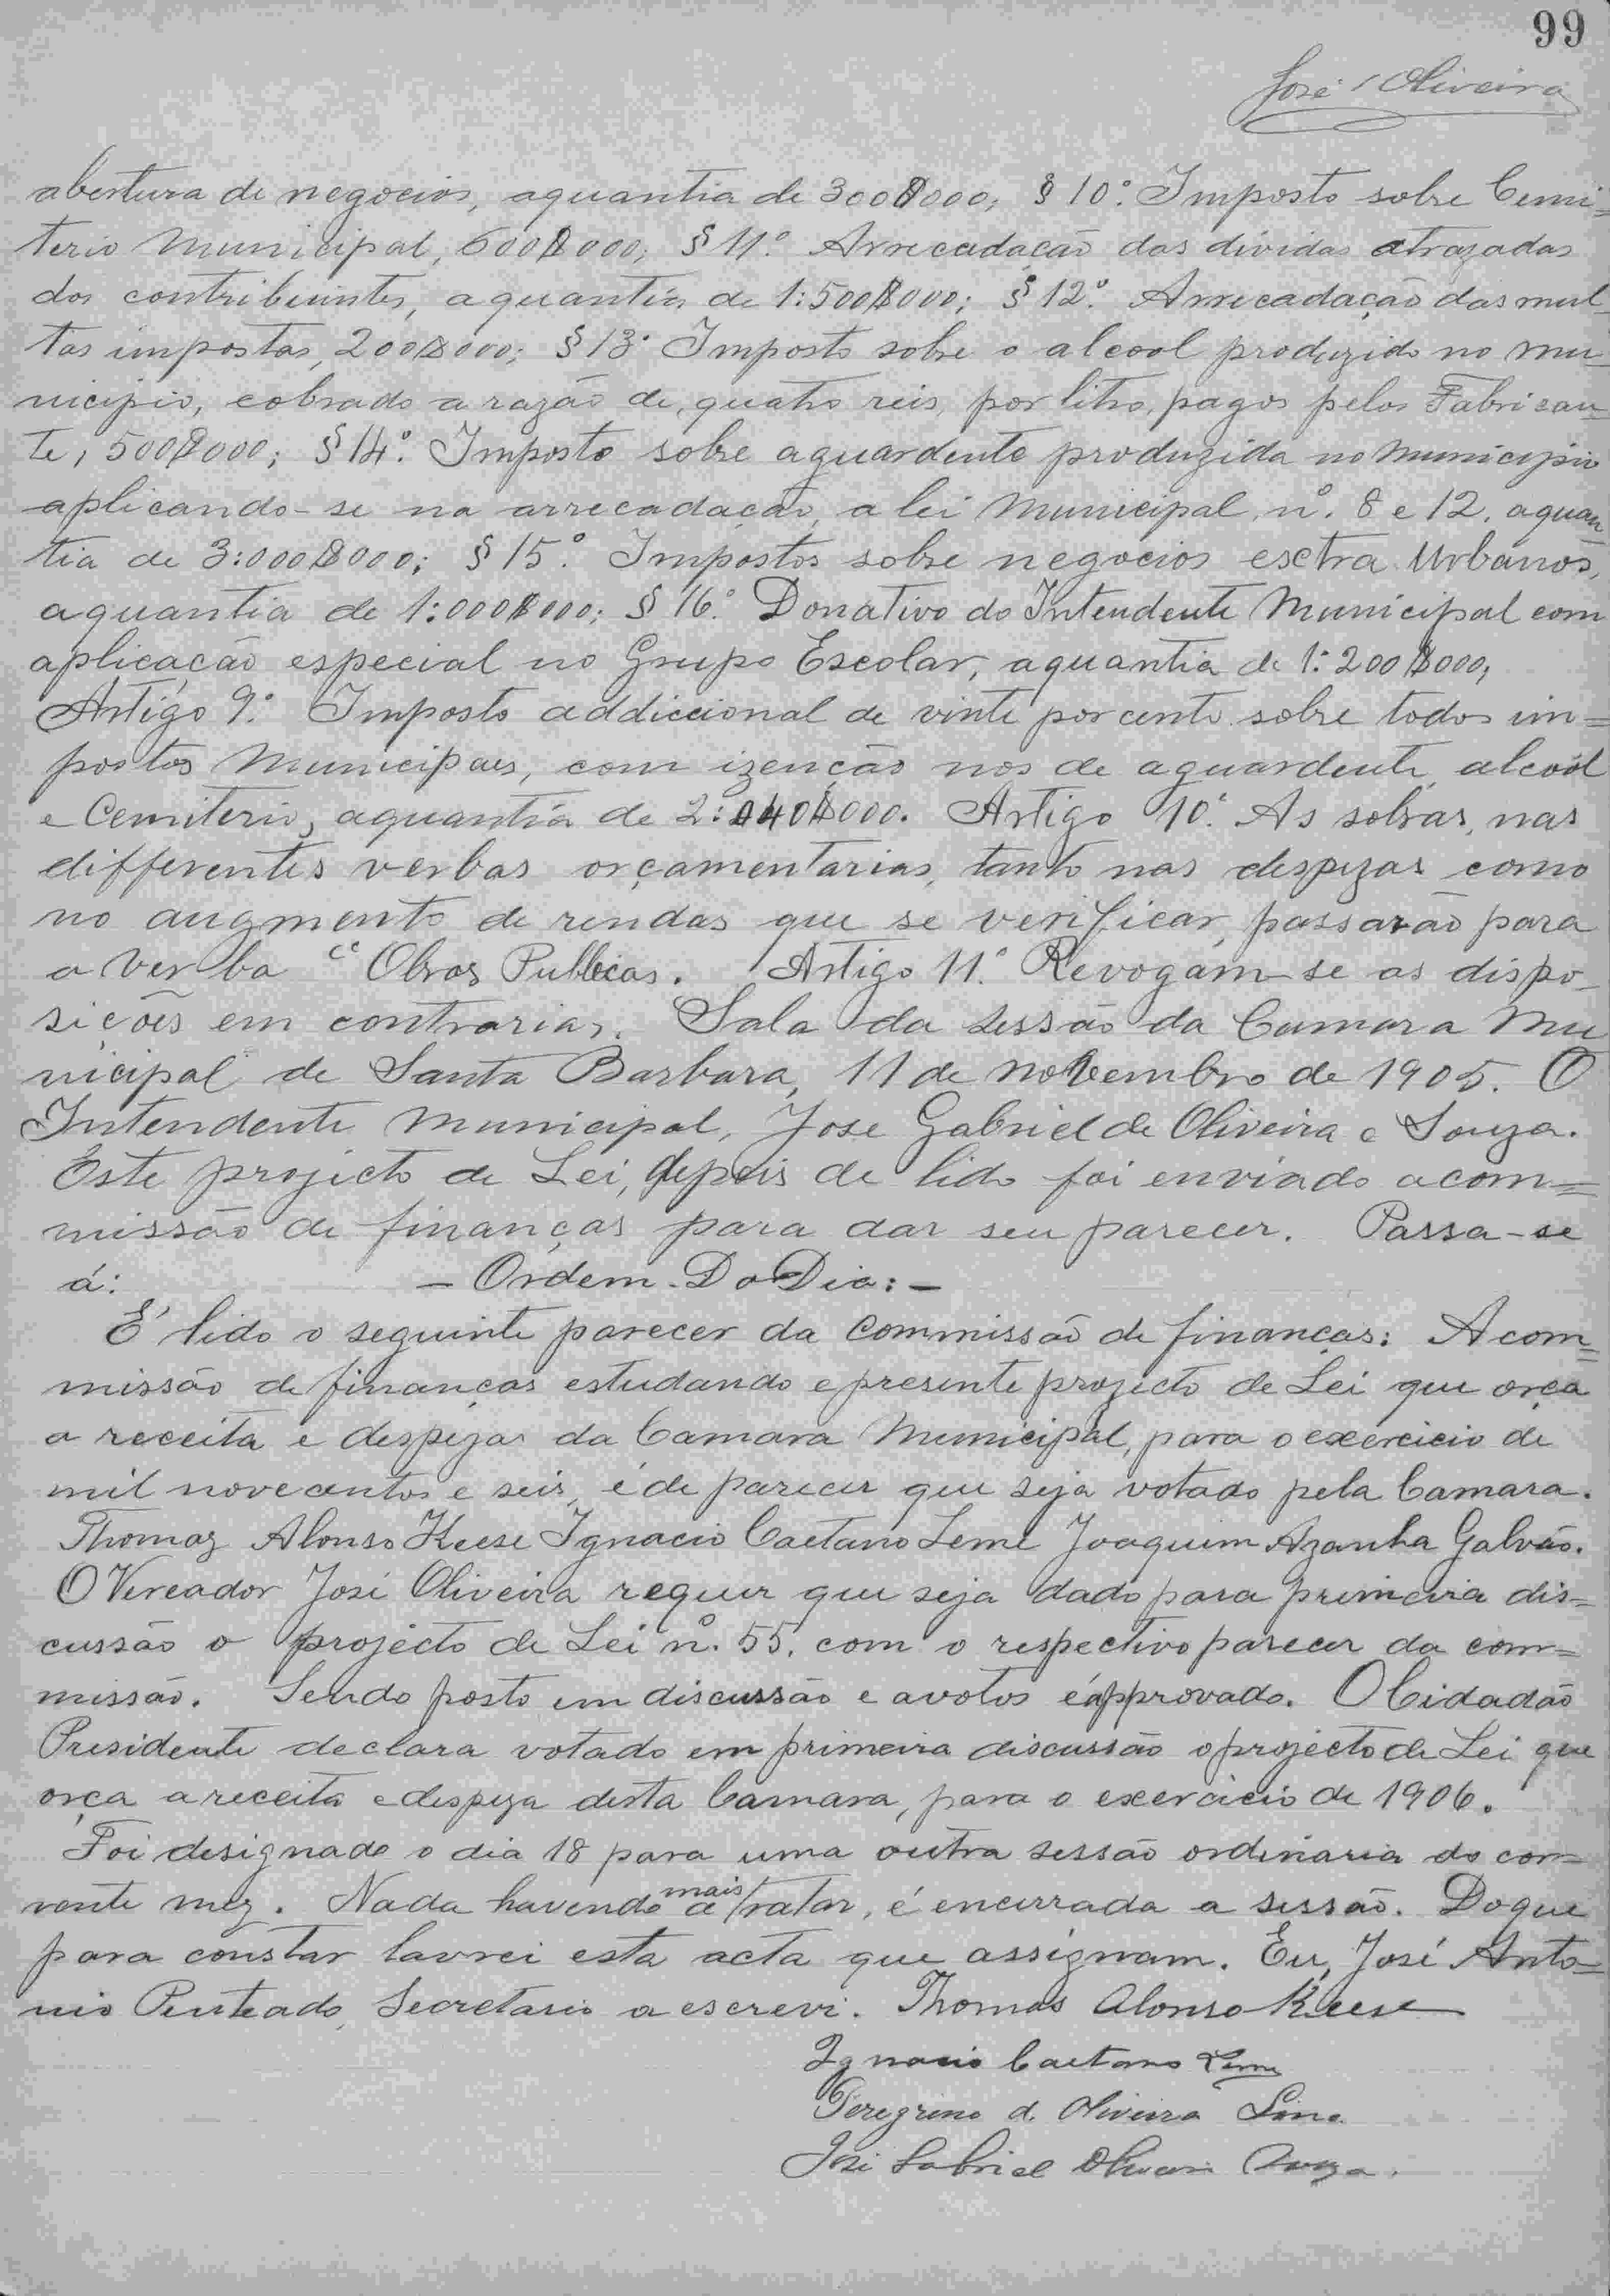 99
José Oliveira
abertura de negocios, aquantia de 300$000; § 10º. Imposto sobre Cemi=
terio Municipal, 600$000; § 11º. Arrecadação das dividas atrazadas
dos contribuintes, a quantia de 1:500$000; § 12º. Arrecadação das mul
tas impostas, 200$000; § 13º Imposto sobre o alcool produzido no mu-
nicipio, cobrado a razão de, quatro reis, por litro, pagos pelos Fabrican-
te, 500$000; § 14º. Imposto sobre aguardente produzida no Municipio
aplicando-se na arrecadação, a lei Municipal, nº. 8 e 12. aquan
tia de 3:000$000; § 15º. Impostos sobre negocios esctra Urbanos,
aquantia de 1:000$000; § 16º. Donativo do Intendente Municipal com
aplicação especial no Grupo Escolar, aquantia de 1:200$000,
Artigo 9º. Imposto addiccional de vinte por cento sobre todos im=
postos Municipaes, com izenção nos de aguardente, alcoól
e Cemiterio, aquantia de 2:040$000. Artigo 10º. As sobras, nas
differentes verbas orçamentarias, tanto nas despezas como
no augmento de rendas que se verificar, passarão para
a verba Obras Publicas. Artigo 11º. Revogam-se as dispo-
sições em contrarias. Sala da sessão da Camara Mu
nicipal de Santa Barbara, 11 de Novembro de 1905. O
Intendente Municipal, Jose Gabriel de Oliveira e Souza.
Este projecto de Lei, depois de lido foi enviado a com=
missão de finanças para dar seu parecer. Passa-se
á: – Ordem Do Dia: –
É lido o seguinte parecer da Commissão de finanças: A com=
missão de finanças estudando o presente projecto de Lei que orça
a receita e despezas da Camara Municipal, para o exercicio de
mil novecentos e seis, é de parecer que seja votado pela Camara.
Thomaz Alonso Keese Ignacio Caetano Leme Joaquim Azanha Galvão.
O Vereador José Oliveira requer que seja dado para primeira dis=
cussão o projecto de Lei nº. 55. com o respectivo parecer da com=
missão. Sendo posto em discussão e a votos é approvado. O Cidadão
Presidente declara votado em primeira discussão o projecto de Lei que
orça a receita e despeza desta Camara, para o exercicio de 1906.
Foi designado o dia 18 para uma outra sessão ordinaria do cor=
rente mez. Nada havendo mais a tratar, é encerrada a sessão. Do que
para constar lavrei esta acta que assignam. Eu, José Anto=
nio Penteado, Secretario a escrevi. Thomas Alonso Keese
Ignacio Caetano Leme
Peregrino d. Oliveira Lino
José Gabriel Oliveira Souza.